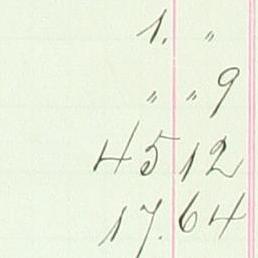 1. "
" " 9
45 12
17.64